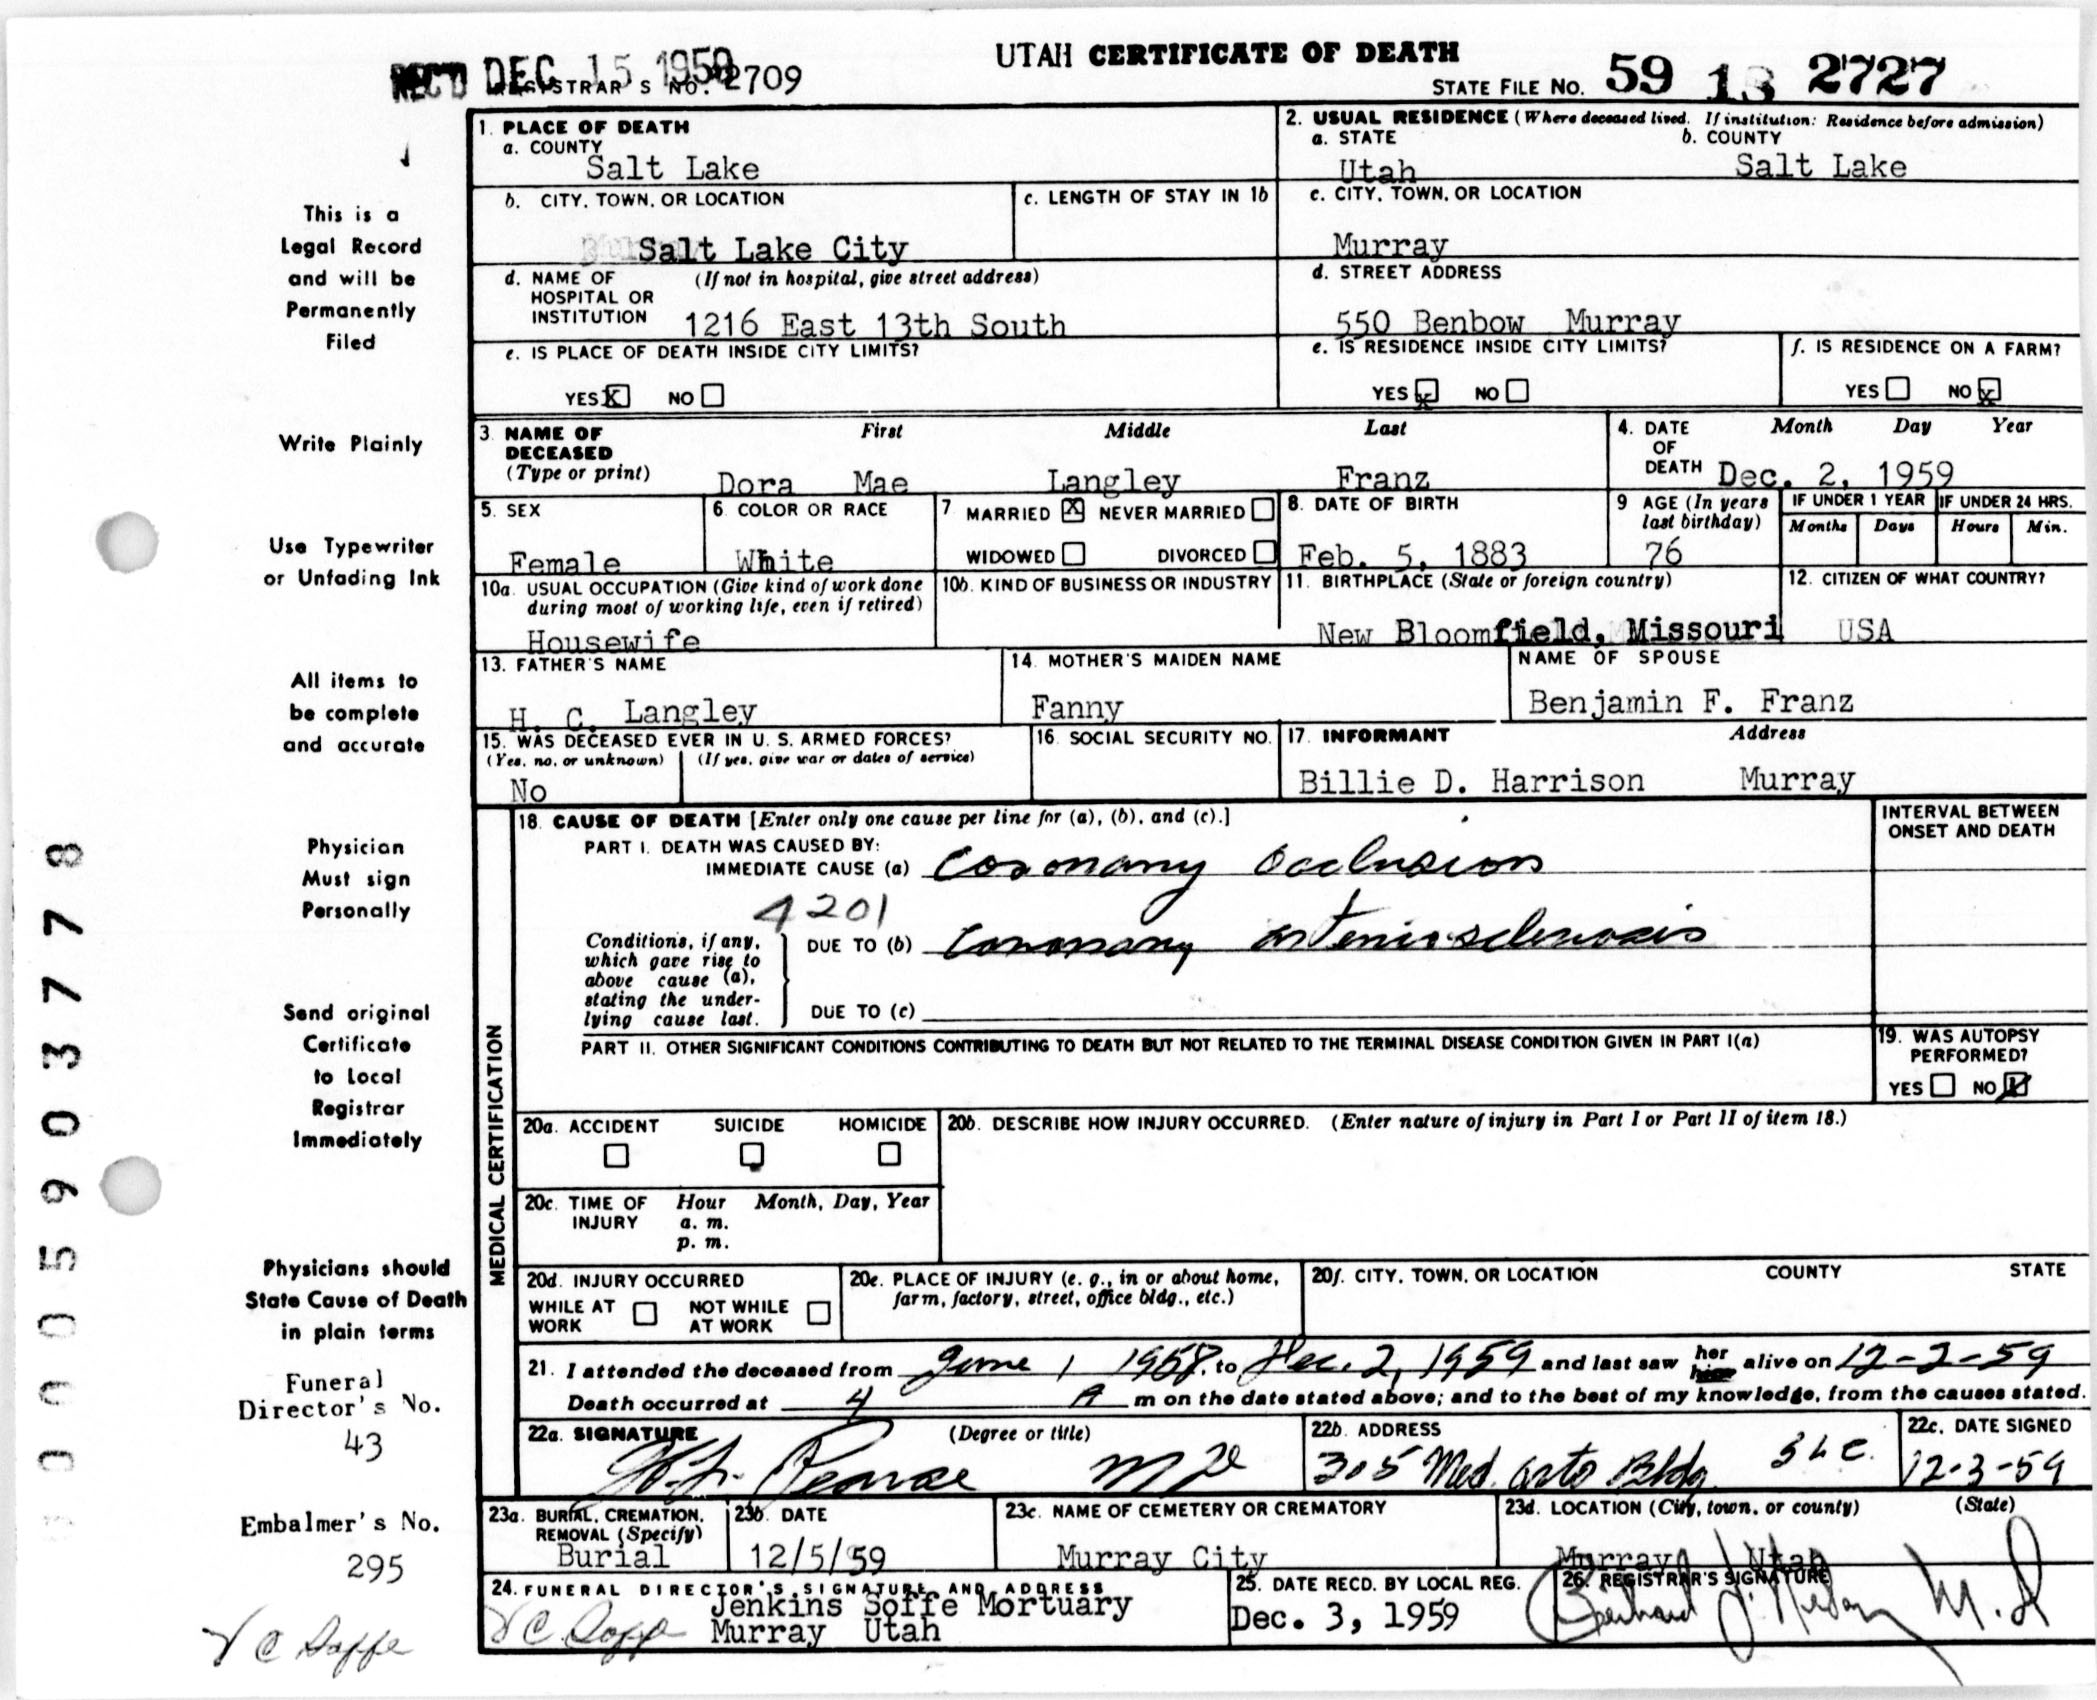 UTAH CERTIFICATE OF DEATH
REC'D DEC 15 1959
REGISTRAR'S NO. 2709
STATE FILE NO. 59 18 2727
1. PLACE OF DEATH
a. COUNTY
Salt Lake
2. USUAL RESIDENCE (Where deceased lived. If institution: Residence before admission)
a. STATE b. COUNTY
Utah Salt Lake
b. CITY, TOWN, OR LOCATION
Salt Lake City
c. LENGTH OF STAY IN 1b
c. CITY, TOWN, OR LOCATION
Murray
d. NAME OF HOSPITAL OR INSTITUTION (If not in hospital, give street address)
1216 East 13th South
d. STREET ADDRESS
550 Benbow Murray
e. IS PLACE OF DEATH INSIDE CITY LIMITS?
YES X NO
e. IS RESIDENCE INSIDE CITY LIMITS?
YES X NO
f. IS RESIDENCE ON A FARM?
YES NO X
3. NAME OF DECEASED (Type or print)
First Middle Last
Dora Mae Langley Franz
4. DATE OF DEATH Month Day Year
Dec. 2, 1959
5. SEX
Female
6. COLOR OR RACE
White
7. MARRIED X NEVER MARRIED
WIDOWED DIVORCED
8. DATE OF BIRTH
Feb. 5, 1883
9 AGE (In years last birthday)
76
IF UNDER 1 YEAR
Months Days
IF UNDER 24 HRS.
Hours Min.
10a. USUAL OCCUPATION (Give kind of work done during most of working life, even if retired)
Housewife
10b. KIND OF BUSINESS OR INDUSTRY
11. BIRTHPLACE (State or foreign country)
New Bloomfield, Missouri
12. CITIZEN OF WHAT COUNTRY?
USA
13. FATHER'S NAME
H. C. Langley
14. MOTHER'S MAIDEN NAME
Fanny
NAME OF SPOUSE
Benjamin F. Franz
15. WAS DECEASED EVER IN U. S. ARMED FORCES?
(Yes, no, or unknown) (If yes, give war or dates of service)
No
16. SOCIAL SECURITY NO.
17. INFORMANT Address
Billie D. Harrison Murray
MEDICAL CERTIFICATION
18. CAUSE OF DEATH [Enter only one cause per line for (a), (b), and (c).]
INTERVAL BETWEEN ONSET AND DEATH
PART I. DEATH WAS CAUSED BY:
IMMEDIATE CAUSE (a) Coronary Occlusion
4201
Conditions, if any, which gave rise to above cause (a), stating the underlying cause last.
DUE TO (b) Coronary arteriosclerosis
DUE TO (c)
PART II. OTHER SIGNIFICANT CONDITIONS CONTRIBUTING TO DEATH BUT NOT RELATED TO THE TERMINAL DISEASE CONDITION GIVEN IN PART I(a)
19. WAS AUTOPSY PERFORMED?
YES NO
20a. ACCIDENT SUICIDE HOMICIDE
20b. DESCRIBE HOW INJURY OCCURRED. (Enter nature of injury in Part I or Part II of item 18.)
20c. TIME OF INJURY Hour Month, Day, Year
a. m.
p. m.
20d. INJURY OCCURRED
WHILE AT WORK NOT WHILE AT WORK
20e. PLACE OF INJURY (e. g., in or about home, farm, factory, street, office bldg., etc.)
20f. CITY, TOWN, OR LOCATION COUNTY STATE
21. I attended the deceased from June 1 1958, to Dec. 2, 1959 and last saw her him alive on 12-2-59
Death occurred at 4 A m on the date stated above; and to the best of my knowledge, from the causes stated.
22a. SIGNATURE (Degree or title)
Pearse MD
22b. ADDRESS
305 Med. Arts Bldg SLC.
22c. DATE SIGNED
12-3-59
23a. BURIAL, CREMATION, REMOVAL (Specify)
Burial
23b. DATE
12/5/59
23c. NAME OF CEMETERY OR CREMATORY
Murray City
23d. LOCATION (City, town, or county) (State)
Murray Utah
24. FUNERAL DIRECTOR'S SIGNATURE AND ADDRESS
Jenkins Soffe Mortuary
V C Soffe Murray Utah
25. DATE RECD. BY LOCAL REG.
Dec. 3, 1959
26. REGISTRAR'S SIGNATURE
M.D
This is a
Legal Record
and will be
Permanently
Filed
Write Plainly
Use Typewriter
or Unfading Ink
All items to
be complete
and accurate
Physician
Must sign
Personally
Send original
Certificate
to Local
Registrar
Immediately
Physicians should
State Cause of Death
in plain terms
Funeral
Director's No.
43
Embalmer's No.
295
V C Soffe
000590377 8